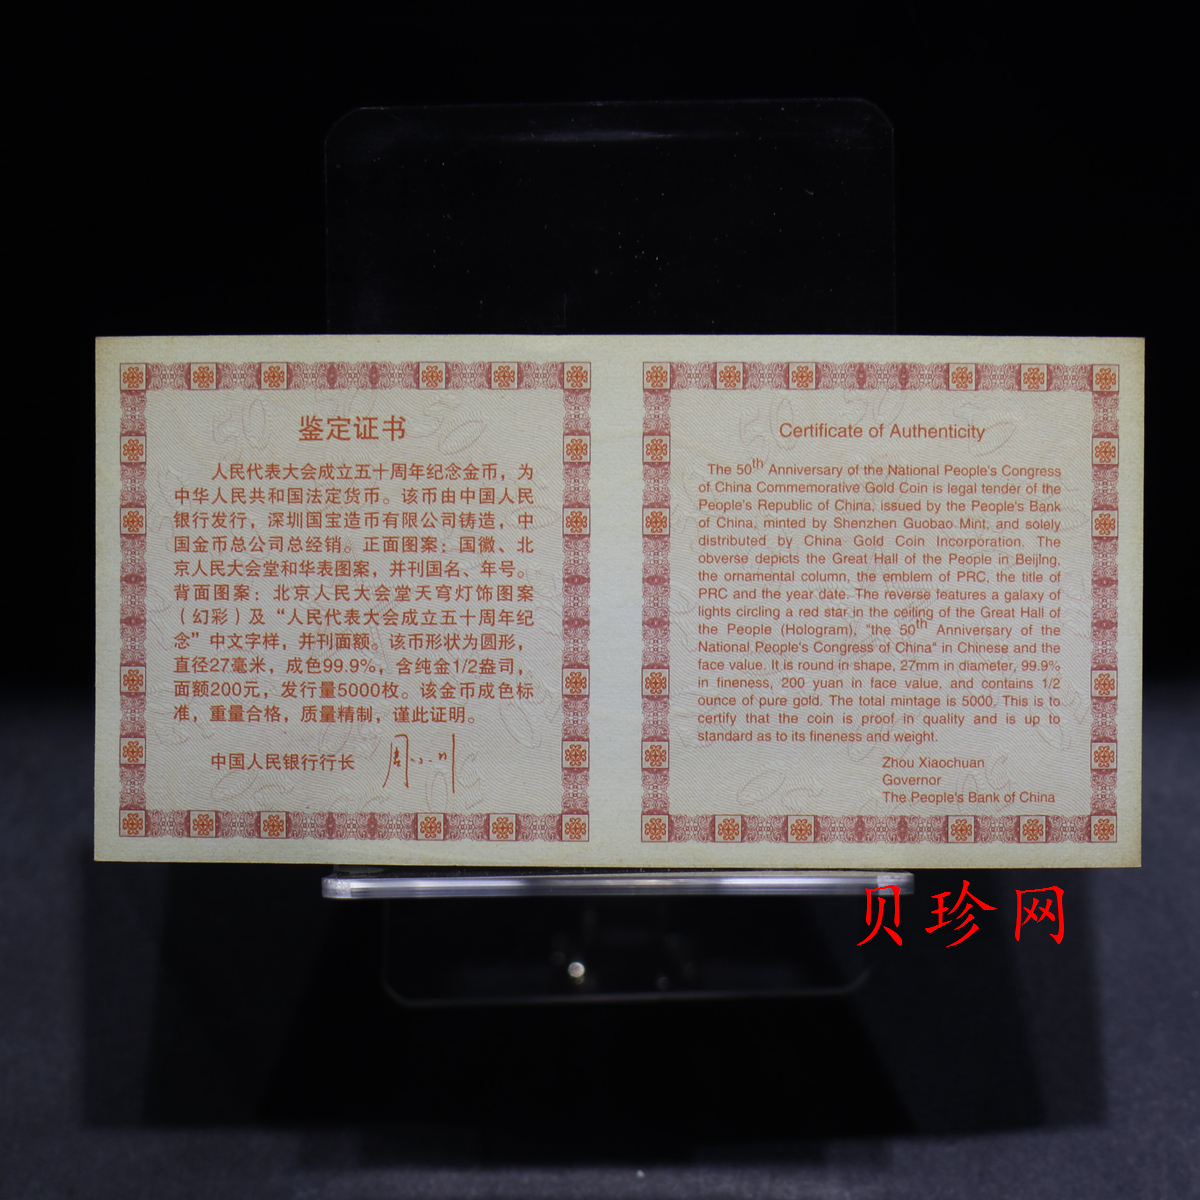 鉴定证书
人民代表大会成立五十周年纪念金币，为
中华人民共和国法定货币。该币由中国人民
银行发行，深圳国宝造币有限公司铸造，中
国金币总公司总经销。正面图案：国徽、北
京人民大会堂和华表图案，并刊国名、年号。
背面图案：北京人民大会堂天穹灯饰图案
（幻彩）及“人民代表大会成立五十周年纪
念”中文字样，并刊面额。该币形状为圆形，
直径27毫米，成色99.9%，含纯金1/2盎司，
面额200元，发行量5000枚。该金币成色标
准，重量合格，质量精制，谨此证明。
中国人民银行行长 周小川
Certificate of Authenticity
The 50th Anniversary of the National People's Congress
of China Commemorative Gold Coin is legal tender of the
People's Republic of China, issued by the People's Bank
of China, minted by Shenzhen Guobao Mint, and solely
distributed by China Gold Coin Incorporation. The
obverse depicts the Great Hall of the People in BeijIng,
the ornamental column, the emblem of PRC, the title of
PRC and the year date. The reverse features a galaxy of
lights circling a red star in the ceiling of the Great Hall of
the People (Hologram), "the 50th Anniversary of the
National People's Congress of China" in Chinese and the
face value. It is round in shape, 27mm in diameter, 99.9%
in fineness, 200 yuan in face value, and contains 1/2
ounce of pure gold. The total mintage is 5000. This is to
certify that the coin is proof in quality and is up to
standard as to its fineness and weight.
Zhou Xiaochuan
Governor
The People's Bank of China
贝珍网